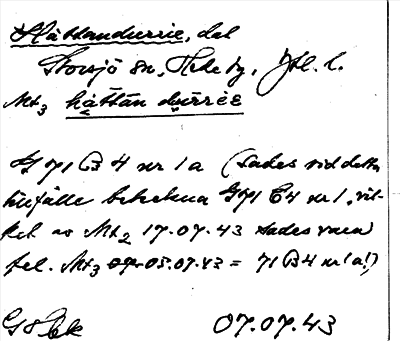 Håttandurrie, dal
Storsjö sn, Hede tg, Jtl. l.
Mt3 håttån durrëe
G 71 B 4 nr 1 a (sades vid detta
tillfälle beteckna G 71 C4 nr 1, vil-
ket av Mt2 17.07.43 sades vara
fel. Mt3 03.07.43 = 71 B4 nr 1 a!)
07.07.43